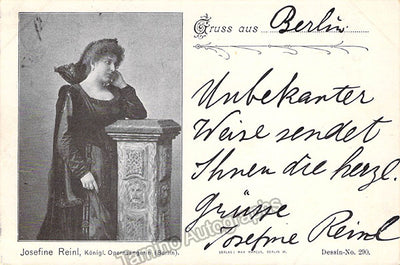 Gruss aus Berlin
Unbekanter
Weise sendet
Ihnen die herzl.
Grüsse
Josefine Reinl
Josefine Reinl, Königl. Opernsängerin (Berlin).
VERLAG: MAX MARCUS, BERLIN W.
Dessin-No. 290.
Tamino Autographs